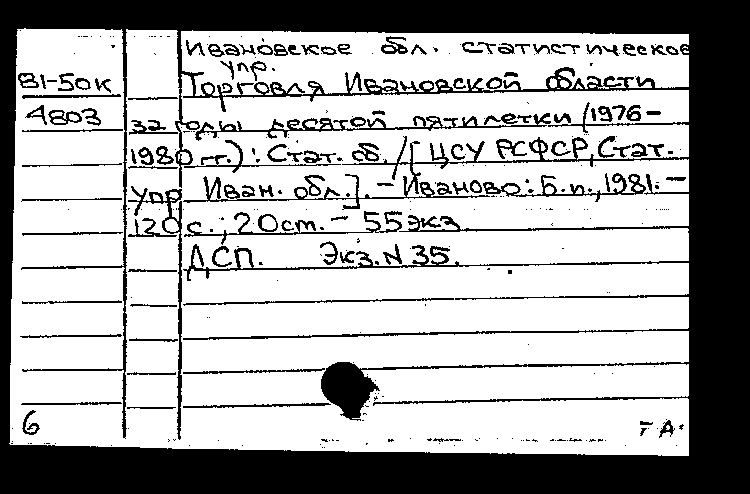 Ивановское обл. статистическое
упр.
81-50к Торговля Ивановской области
4803 за годы десятой пятилетки (1976-
1980 гг.) : Стат. сб. / [ЦСУ РСФСР, Стат.
упр Иван. обл.]. - Иваново : Б.и., 1981. -
120 с. ; 20 ст. - 55 экз
ДСП. Экз. N 35.
6 Т А.